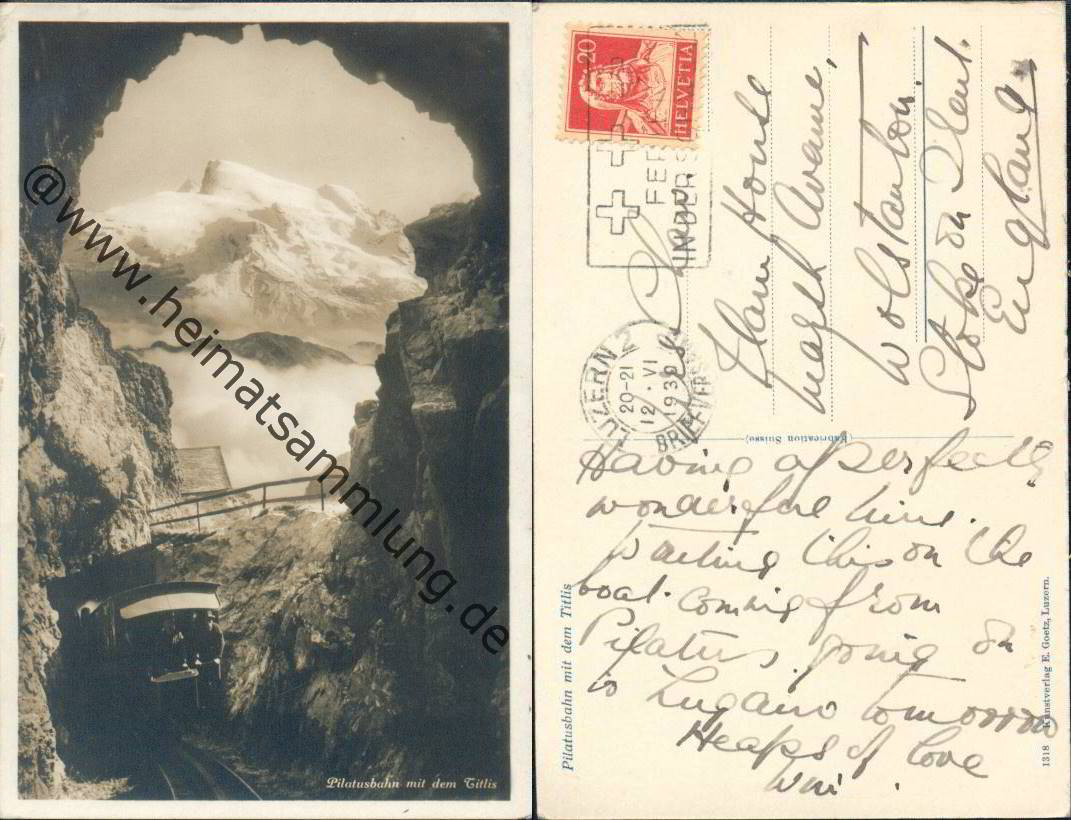 @www.heimatsammlung.de
Pilatusbahn mit dem Titlis
20
HELVETIA
LUZERN 2
20-21
12. VI
1930
House
Avenue,
Wolstanton
Stoke on Trent.
England
(Fabrication Suisse)
Having a perfectly
wonderful time.
Writing this on the
boat. coming from
Pilatus, going on
to Lugano tomorrow
Heaps of love
Win.
Pilatusbahn mit dem Titlis
1318 Kunstverlag E. Goetz, Luzern.